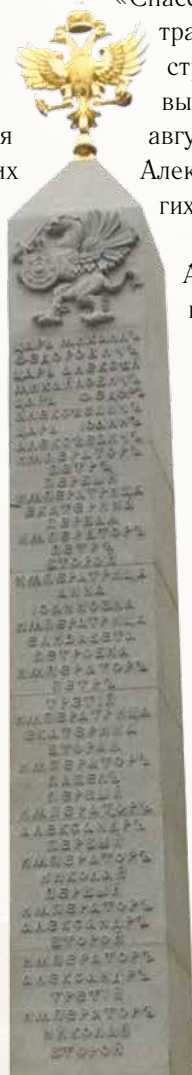 «Спасс
тра
стр
вы
я авгу
их Алек
гих
А
ЦАРЬ МИХАИЛЪ
ѲЕДОРОВИЧЪ
ЦАРЬ АЛЕКСѢЙ
МИХАЙЛОВИЧЪ
ЦАРЬ ѲЕДОРЪ
АЛЕКСѢЕВИЧЪ
ЦАРЬ ІОАННЪ
АЛЕКСѢЕВИЧЪ
ИМПЕРАТОРЪ
ПЕТРЪ
ПЕРВЫЙ
ИМПЕРАТРИЦА
ЕКАТЕРИНА
ПЕРВАЯ
ИМПЕРАТОРЪ
ПЕТРЪ
ВТОРОЙ
ИМПЕРАТРИЦА
АННА
ІОАННОВНА
ИМПЕРАТРИЦА
ЕЛИЗАВЕТА
ПЕТРОВНА
ИМПЕРАТОРЪ
ПЕТРЪ
ТРЕТІЙ
ИМПЕРАТРИЦА
ЕКАТЕРИНА
ВТОРАЯ
ИМПЕРАТОРЪ
ПАВЕЛЪ
ПЕРВЫЙ
ИМПЕРАТОРЪ
АЛЕКСАНДРЪ
ПЕРВЫЙ
ИМПЕРАТОРЪ
НИКОЛАЙ
ПЕРВЫЙ
ИМПЕРАТОРЪ
АЛЕКСАНДРЪ
ВТОРОЙ
ИМПЕРАТОРЪ
АЛЕКСАНДРЪ
ТРЕТІЙ
ИМПЕРАТОРЪ
НИКОЛАЙ
ВТОРОЙ